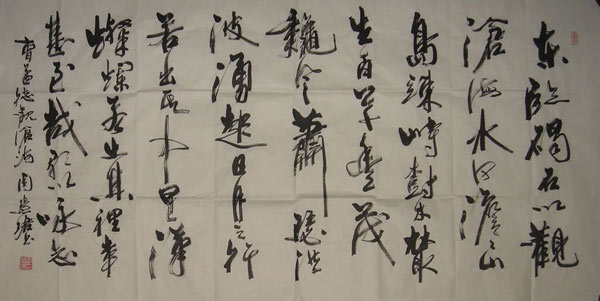 東臨碣石以觀
滄海水何澹澹山
島竦峙樹木叢
生百草豐茂
龝風蕭瑟洪
波湧起日月之行
若出其中星漢
燦爛若出其裡幸
甚至哉歌以詠志
曹孟德觀滄海 周